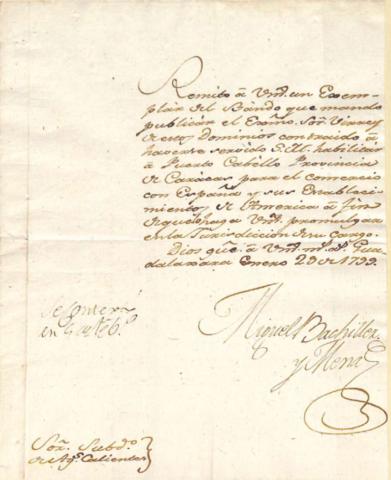 Remito à Vmd. un Exem-
plar del Bando que mandó
publicar el Exmo. Sor. Virrey
de estos Dominios contraido à
haverse servido S. M. habilitar
à Puerto Cabello Provincia
de Caràcas para el comercio
con España y sus Estableci-
mientos de America à fin
de que lo haga Vmd. promulgar
en la Jurisdiccion de su cargo.
Dios gue. à Vmd. ms. as. Gua-
dalaxara Enero 29 de 1799.
Miguel Bachiller
y Mena
Se contextó
en 9 de Feb.o
Sor. Subdo.
de Ags. Calientes